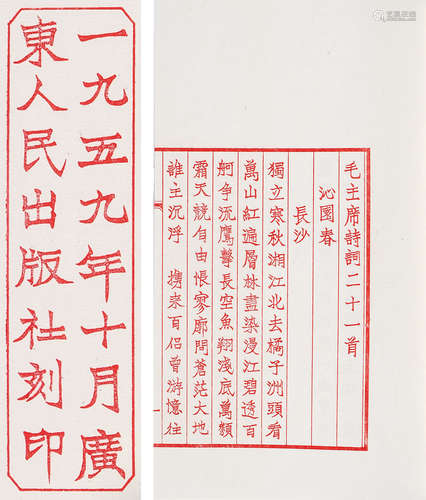 一九五九年十月廣
東人民出版社刻印
毛主席詩詞二十一首
沁園春
長沙
獨立寒秋湘江北去橘子洲頭看
萬山紅遍層林盡染漫江碧透百
舸争流鷹擊長空魚翔淺底萬類
霜天競自由悵寥廓問蒼茫大地
誰主沉浮　携來百侶曾游憶往